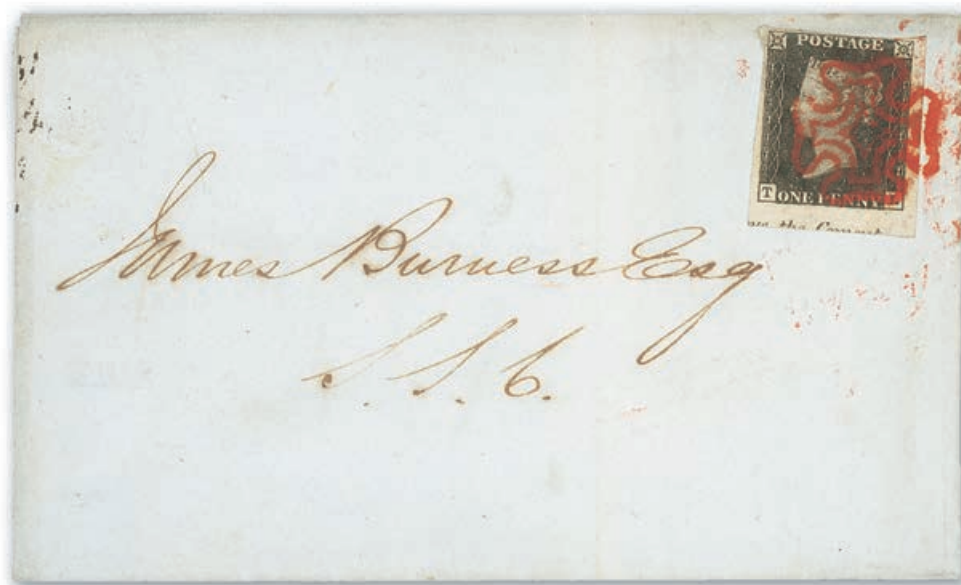 POSTAGE
T ONE PENNY
the
James Burness Esq
S.S.C.